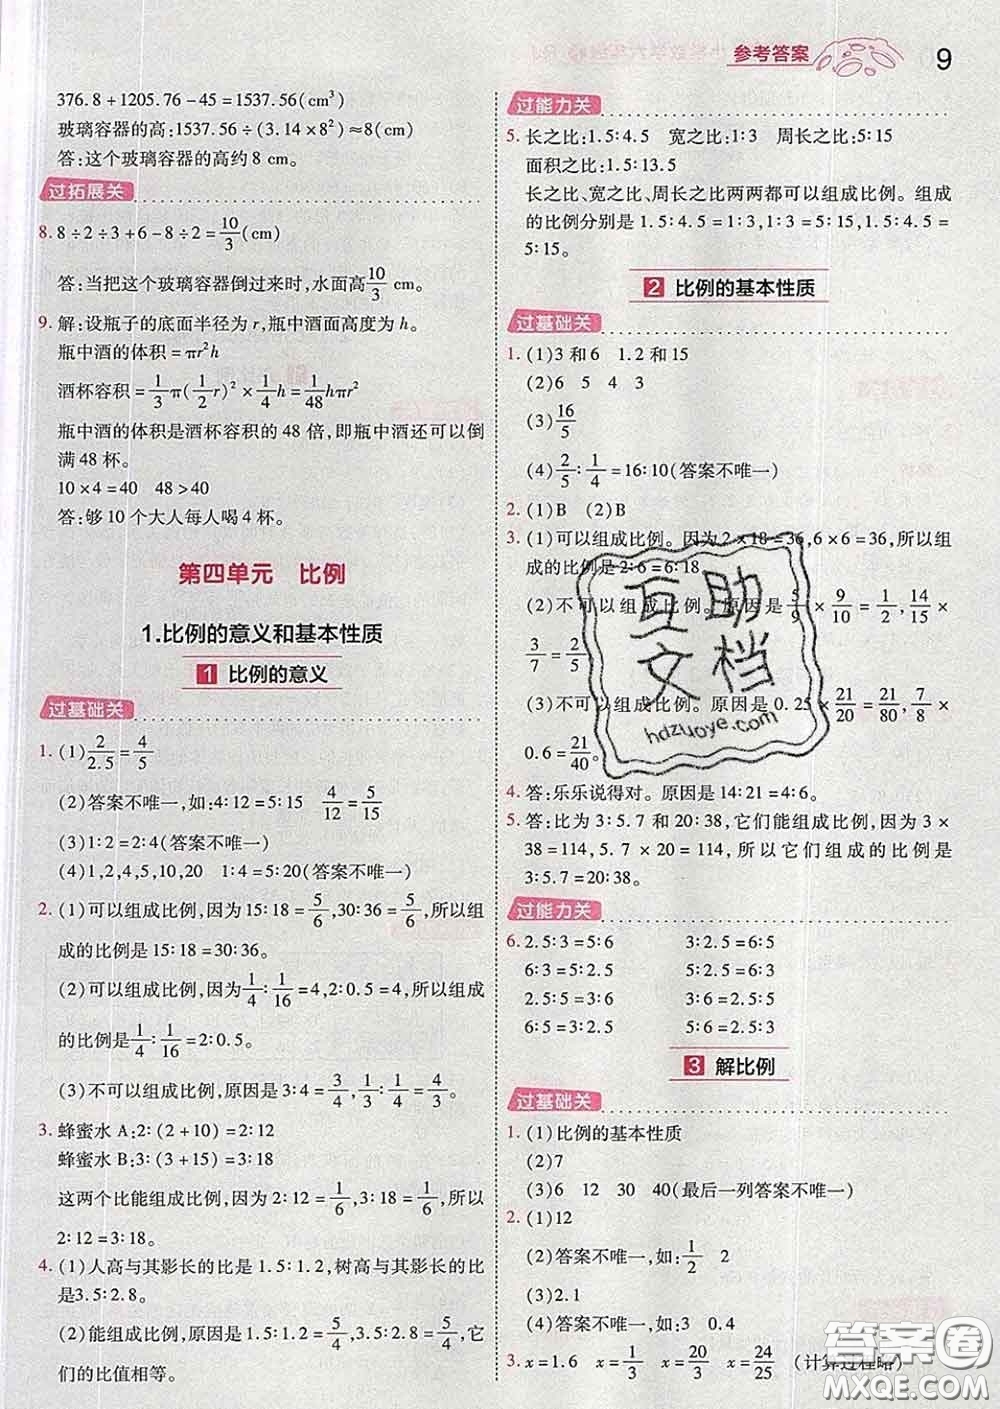 参考答案
9
376.8+1205.76-45=1537.56(cm³)
玻璃容器的高:1537.56÷(3.14×8²)≈8(cm)
答:这个玻璃容器的高约8 cm。
过拓展关
8. 8÷2÷3+6-8÷2=10/3(cm)
答:当把这个玻璃容器倒过来时,水面高10/3 cm。
9. 解:设瓶子的底面半径为r,瓶中酒面高度为h。
瓶中酒的体积=πr²h
酒杯容积=1/3π(1/2r)²×1/4h=1/48hπr²
瓶中酒的体积是酒杯容积的48倍,即瓶中酒还可以倒
满48杯。
10×4=40 48>40
答:够10个大人每人喝4杯。
第四单元 比例
1.比例的意义和基本性质
1 比例的意义
过基础关
1. (1)2/2.5=4/5
(2)答案不唯一,如:4∶12=5∶15 4/12=5/15
(3)1∶2=2∶4(答案不唯一)
(4)1,2,4,5,10,20 1∶4=5∶20(答案不唯一)
2. (1)可以组成比例,因为15∶18=5/6,30∶36=5/6,所以组
成的比例是15∶18=30∶36。
(2)可以组成比例,因为1/4∶1/16=4,2∶0.5=4,所以组成
的比例是1/4∶1/16=2∶0.5。
(3)不可以组成比例,原因是3∶4=3/4,1/3∶1/4=4/3。
3. 蜂蜜水A:2∶(2+10)=2∶12
蜂蜜水B:3∶(3+15)=3∶18
这两个比能组成比例,因为2∶12=1/6,3∶18=1/6,所以
2∶12=3∶18。
4. (1)人高与其影长的比是1.5∶1.2,树高与其影长的比
是3.5∶2.8。
(2)能组成比例,原因是1.5∶1.2=5/4,3.5∶2.8=5/4,它
们的比值相等。
过能力关
5. 长之比:1.5∶4.5 宽之比:1∶3 周长之比:5∶15
面积之比:1.5∶13.5
长之比、宽之比、周长之比两两都可以组成比例。组成
的比例分别是1.5∶4.5=1∶3,1∶3=5∶15,1.5∶4.5=
5∶15。
2 比例的基本性质
过基础关
1. (1)3和6 1.2和15
(2)6 5 4 3
(3)16/5
(4)2/5∶1/4=16∶10(答案不唯一)
2. (1)B (2)B
3. (1)可以组成比例。因为2×18=36,6×6=36,所以组
成的比例是2∶6=6∶18。
(2)不可以组成比例。原因是5/9×9/10=1/2,14/15×
3/7=2/5。
(3)不可以组成比例。原因是0.25×21/20=21/80,7/8×
0.6=21/40。
4. 答:乐乐说得对。原因是14∶21=4∶6。
5. 答:比为3∶5.7和20∶38,它们能组成比例,因为3×
38=114,5.7×20=114,所以它们组成的比例是
3∶5.7=20∶38。
过能力关
6. 2.5∶3=5∶6 3∶2.5=6∶5
6∶3=5∶2.5 5∶2.5=6∶3
2.5∶5=3∶6 3∶6=2.5∶5
6∶5=3∶2.5 5∶6=2.5∶3
3 解比例
过基础关
1. (1)比例的基本性质
(2)7
(3)6 12 30 40(最后一列答案不唯一)
2. (1)12
(2)答案不唯一,如:1/2 2
(3)2.1
(4)答案不唯一,如:3 0.4
3. x=1.6 x=1/3 x=20/3 x=24/25 (计算过程略)
互助
文档
hdzuoye.com
答案圈
MXQE.COM